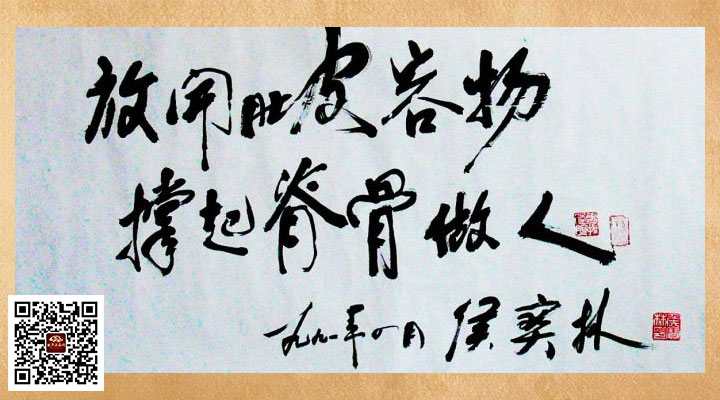 放开肚皮容物
撑起脊骨做人
一九九一年 月 侯寶林